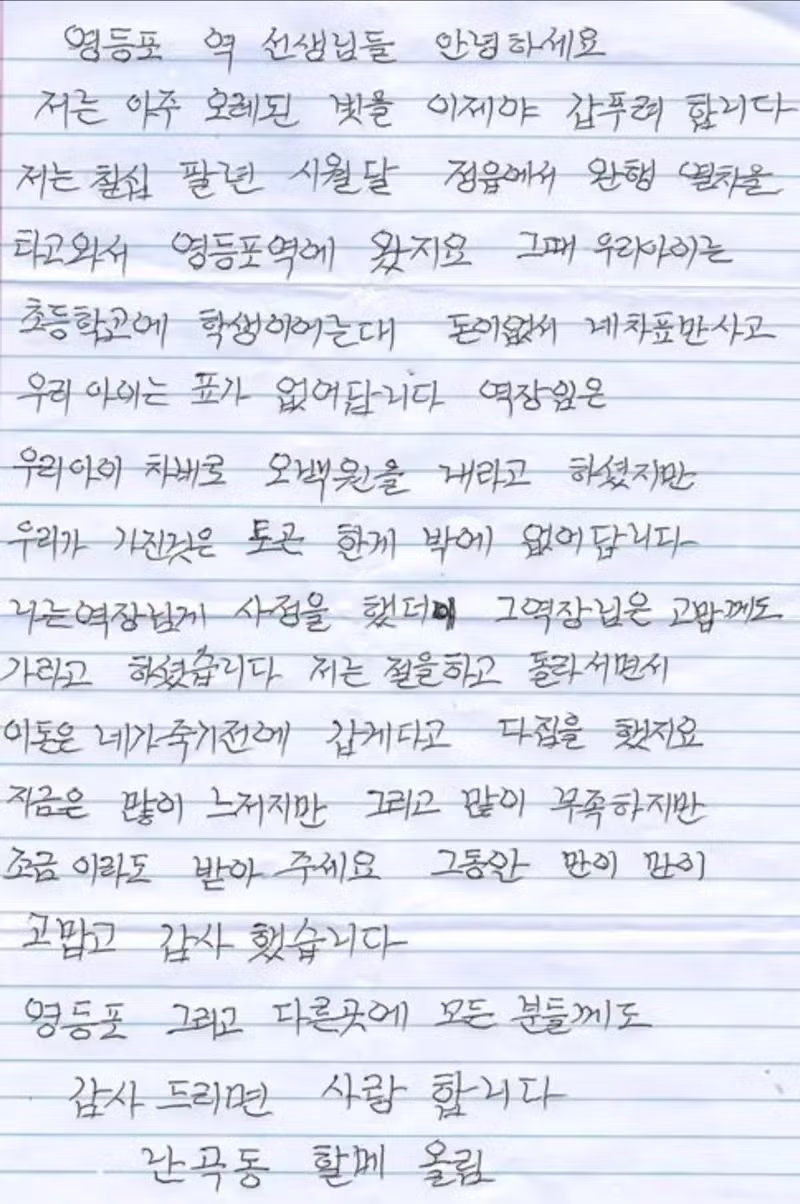 영등포 역 선생님들 안녕하세요
저는 아주 오레된 빛을 이제야 갑푸려 합니다
저는 칠십 팔년 시월달 정읍에서 완행 열차을
타고와서 영등포역에 왔지요 그때 우리아이는
초등학교에 학생이어는대 돈이없서 네차표만사고
우리 아이는 표가 없어답니다 역장임은
우리아이 차비로 오백원을 내라고 하셨지만
우리가 가진것은 토큰 한게 박에 없어답니다
나는역장님게 사정을 했더이 그역장님은 고맙께도
가라고 하셨습니다 저는 절을하고 돌라서면서
이돈은 네가죽기전에 갑게다고 다짐을 했지요
지금은 많이 느저지만 그리고 많이 부족하지만
조금 이라도 받아 주세요 그동안 만이 만이
고맙고 감사 했습니다
영등포 그리고 다른곳에 모든 분들께도
감사 드리면 사람 합니다
난곡동 할메 올림